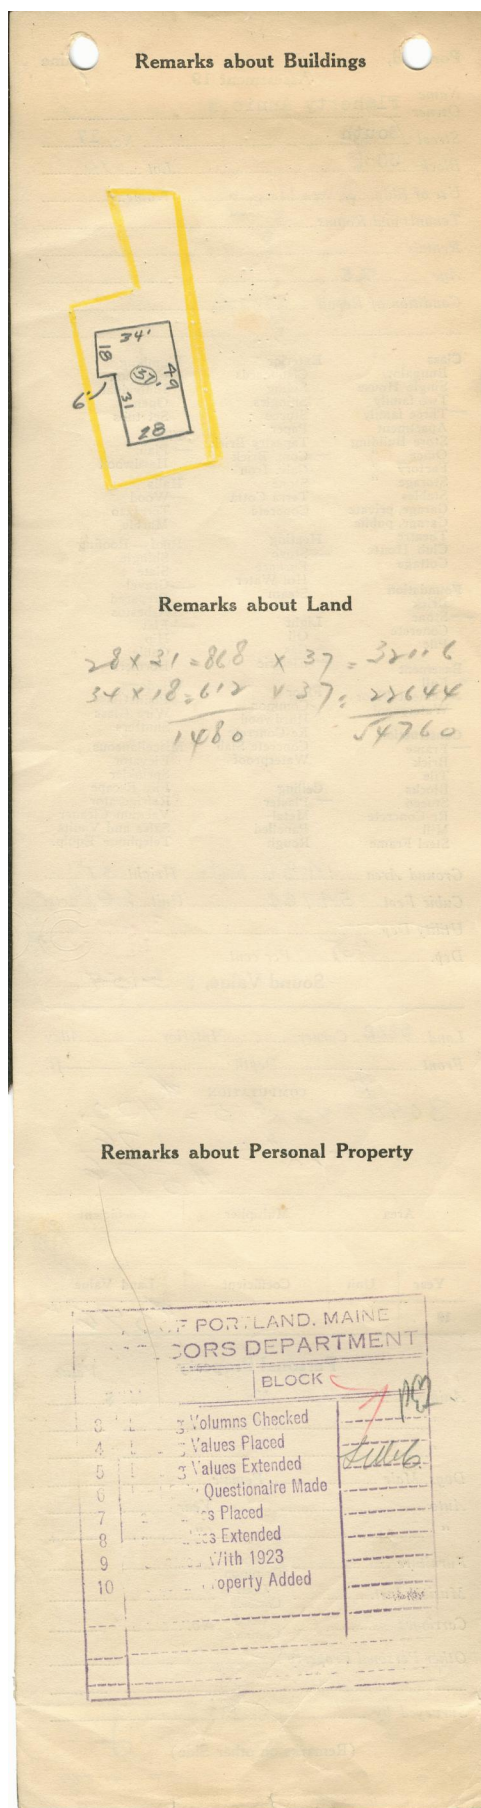 Remarks about Buildings
34'
18
37'
49
6'
31
28
Remarks about Land
28 x 31 = 868 x 37 = 32116
34 x 18 = 612 x 37 = 22644
1480 54760
Remarks about Personal Property
PORTLAND, MAINE
DEPARTMENT
BLOCK
3 Volumns Checked
4 Values Placed
5 Values Extended
6 Questionaire Made
7 Placed
8 Extended
9 With 1923
10 Added